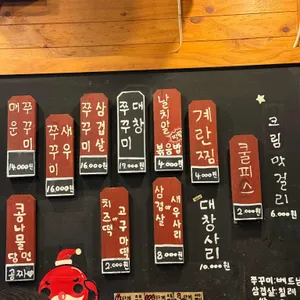 매운 쭈꾸미
14.000원
새우 쭈꾸미
16.000원
삼겹살 쭈꾸미
16.000원
대창 쭈꾸미
17.000원
날치알 볶음밥
4.000원
계란찜
4.000원
쿨피스
2.000원
크림 막걸리
6.000원
콩나물 당면
공짜
고구마떡
치즈떡
2.000원
새우사리
삼겹살
8.000원
대창사리
10.000원
쭈꾸미:베트남
삼겹살:칠레